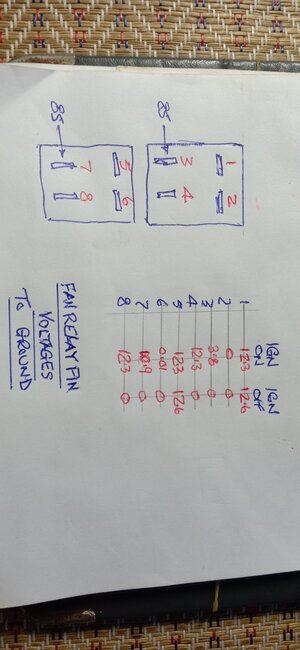 1 2
3 4
85
5 6
7 8
85
IGN ON IGN OFF
1 12.3 12.6
2 0 0
3 3.8 0
4 12.3 0
5 12.3 12.6
6 0.01 0
7 10.9 0
8 12.3 0
FAN RELAY PIN
VOLTAGES
TO GROUND